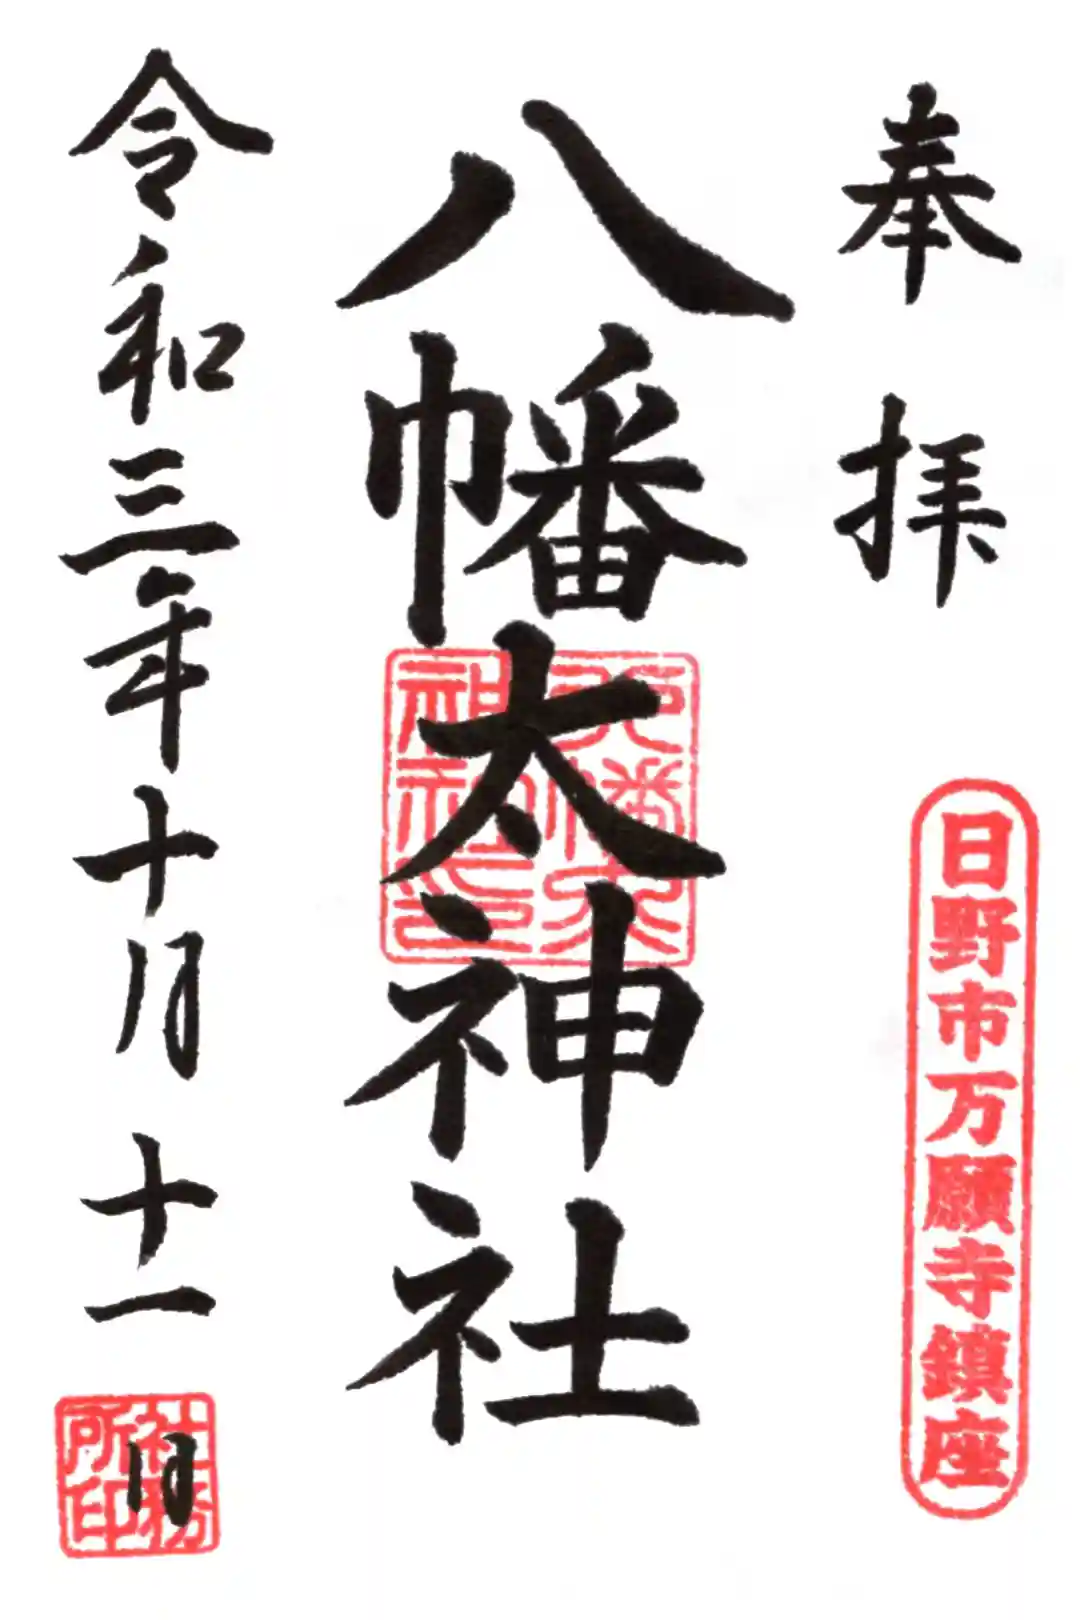 奉拝
日野市万願寺鎮座
八幡太神社
八幡大神社印
令和三年十月十一日
社務所印